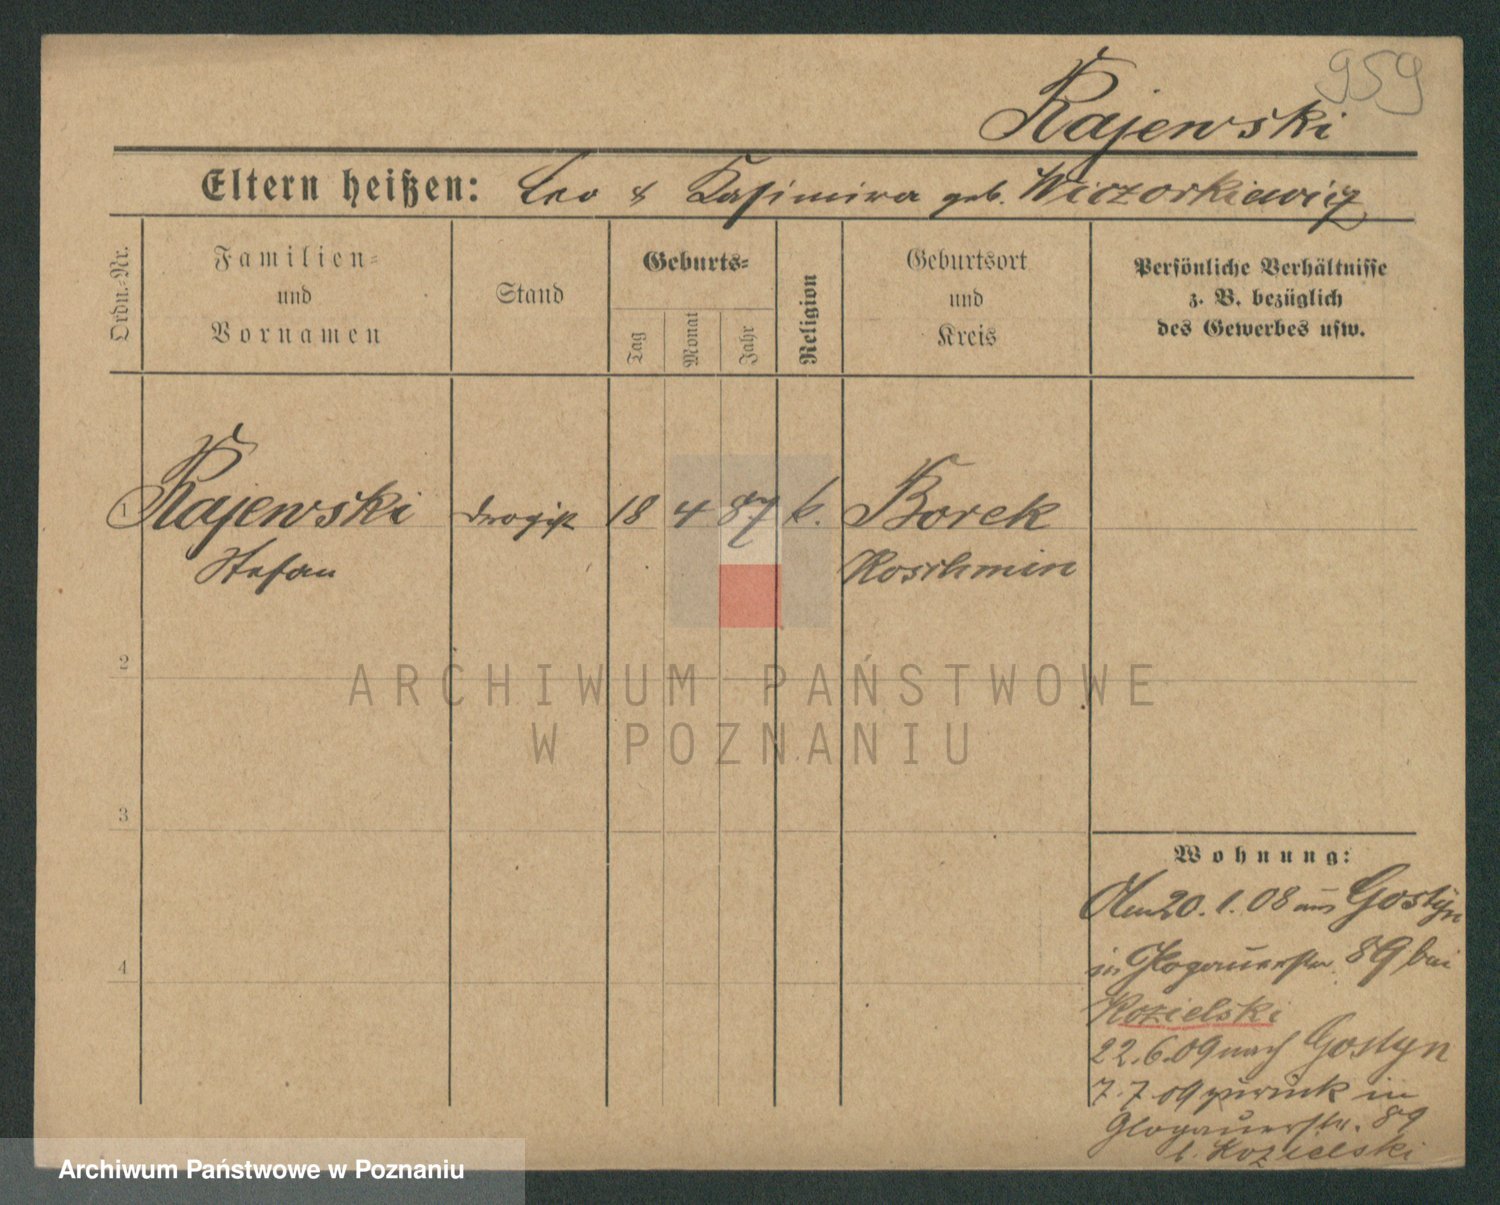 959
Rajewski
Eltern heißen: Leo & Kasimira geb. Wiczorkiewicz
Ordn.-Nr.
Familien-
und
Vornamen
Stand
Geburts-
Tag
Monat
Jahr
Religion
Geburtsort
und
Kreis
Persönliche Verhältnisse
z. B. bezüglich
des Gewerbes usw.
1 Rajewski drogist 18 4 87 k. Borek
Stefan Koschmin
2
ARCHIWUM PAŃSTWOWE
W POZNANIU
3
Wohnung:
20.1.08 aus Gostyn
4
in Glogauerstr. 89 bei
Kozielski
22.6.09 nach Gostyn
7.7.09 zurück in
Glogauerstr. 89
b. Kozielski
Archiwum Państwowe w Poznaniu